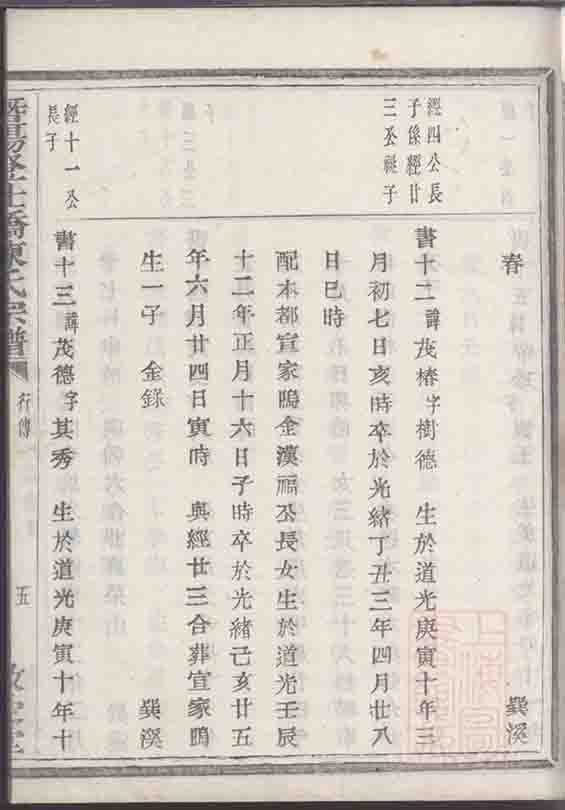 春 巽溪
經四公長
子係經廿
三公祧子
書十二諱茂椿字樹德 生於道光庚寅十年三
月初七日亥時卒於光緒丁丑三年四月廿八
日巳時
配本都宣家塢金漢福公長女生於道光壬辰
十二年正月十六日子時卒於光緒己亥廿五
年六月廿四日寅時 與經廿三合葬宣家塢
生一子 金錄 巽溪
經十一公
長子
書十三諱茂德字其秀 生於道光庚寅十年十
橋陳氏宗譜 行傳 五